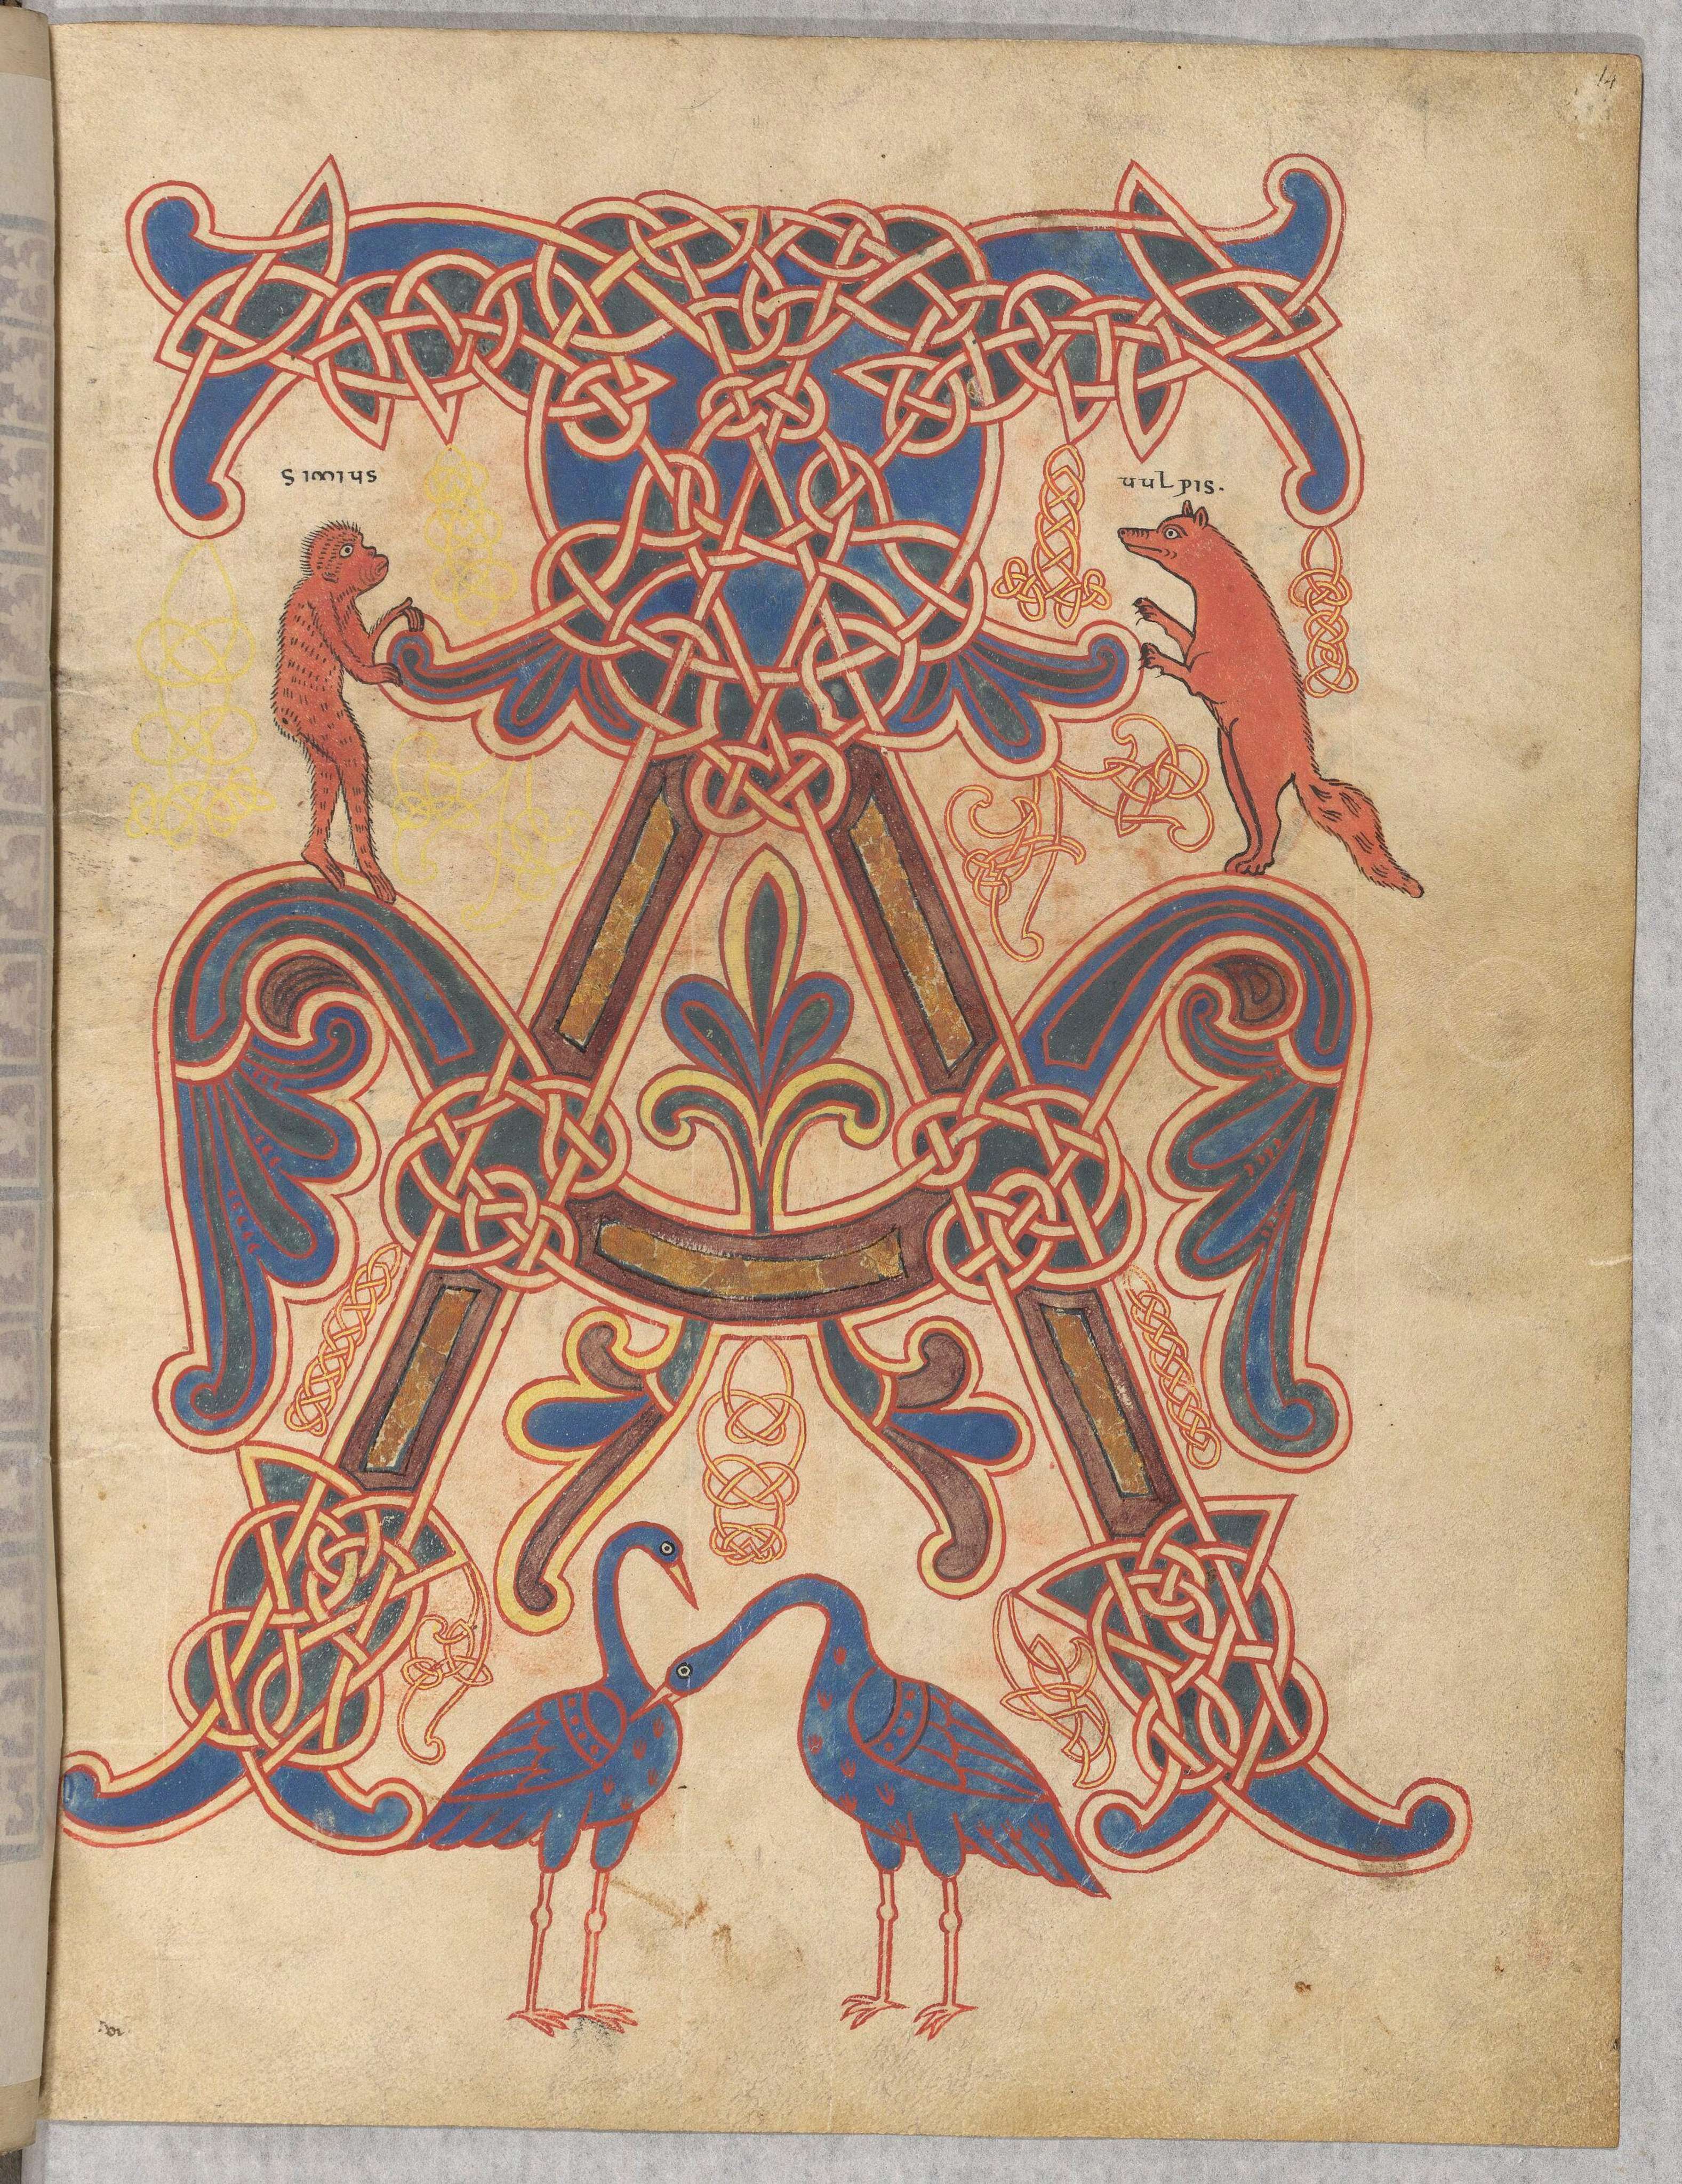 14
simius
uulpis.